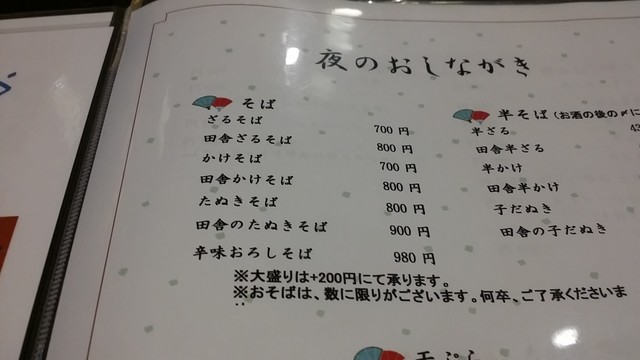 夜のおしながき
そば
ざるそば 700円
田舎ざるそば 800円
かけそば 700円
田舎かけそば 800円
たぬきそば 800円
田舎のたぬきそば 900円
辛味おろしそば 980円
※大盛りは+200円にて承ります。
※おそばは、数に限りがございます。何卒、ご了承くださいま
半そば (お酒の後の〆に
半ざる 43
田舎半ざる
半かけ
田舎半かけ
子だぬき
田舎の子だぬき